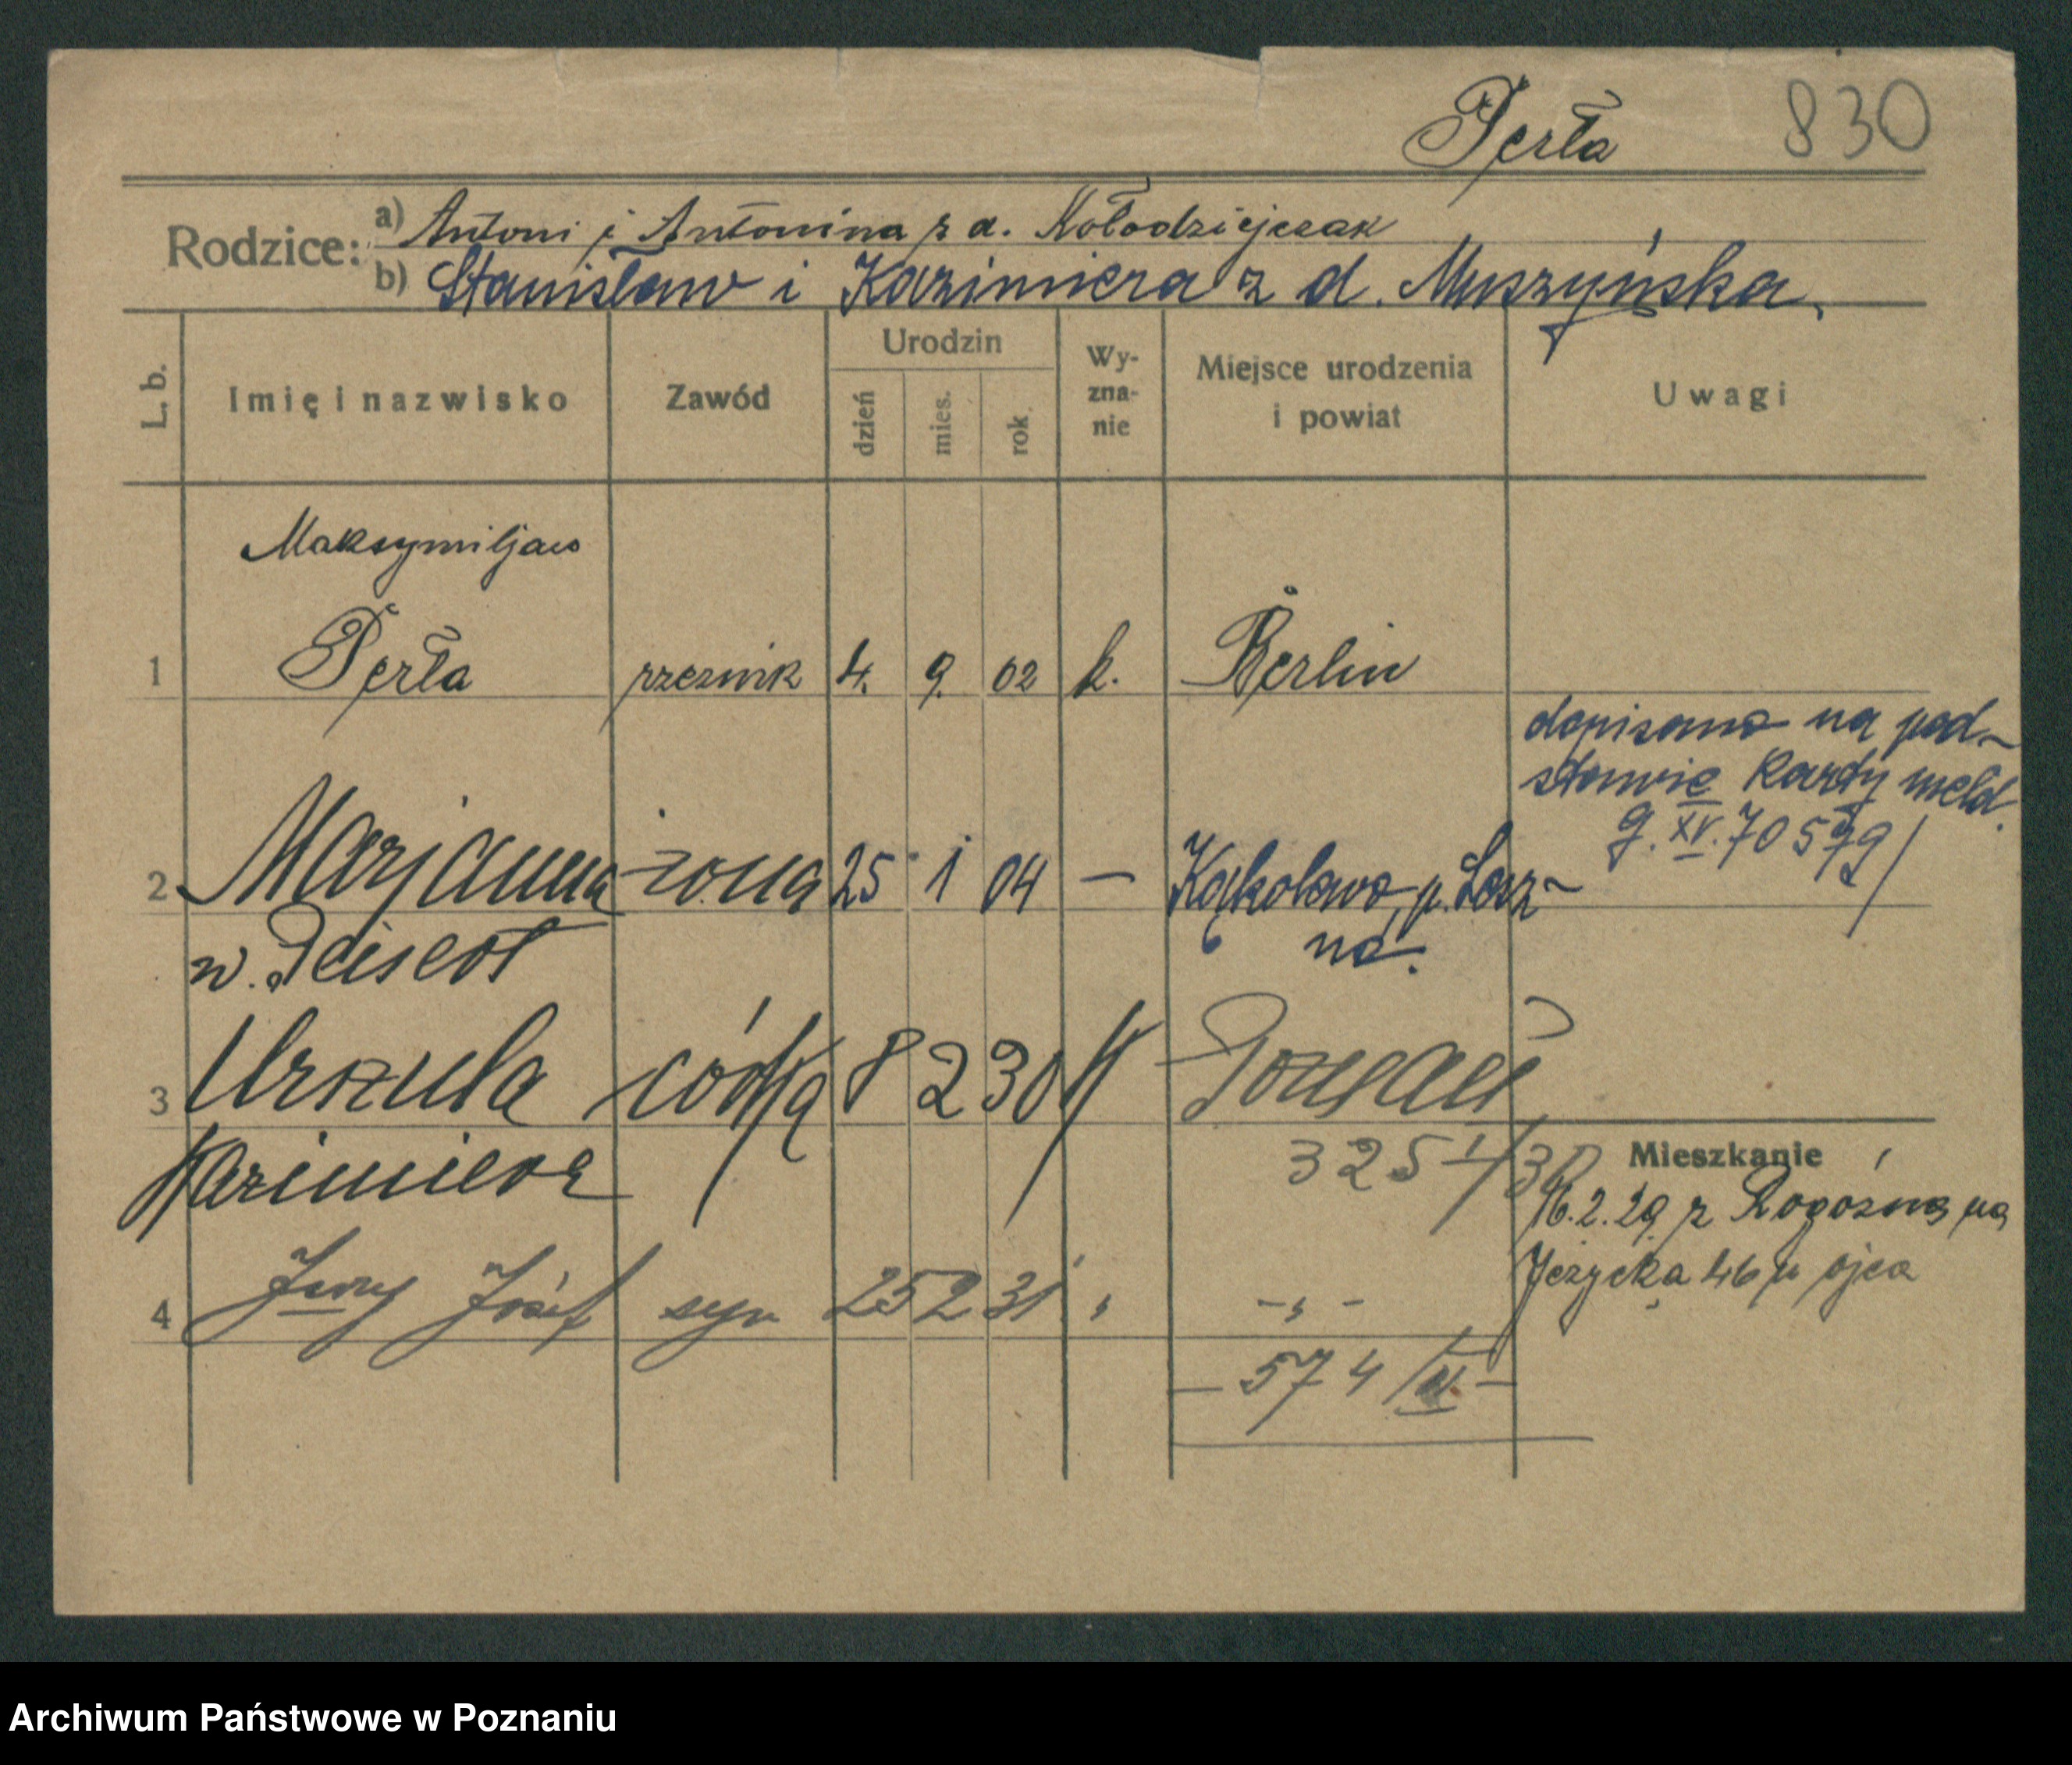 Perła 830
Rodzice: a) Antoni i Antonina z d. Kołodziejczak
b) Stanisław i Kazimiera z d. Muszyńska
L. b. Imię i nazwisko Zawód Urodzin dzień mies. rok Wy-zna-nie Miejsce urodzenia i powiat Uwagi
Maksymiljan
1 Perła rzeźnik 4. 9. 02 k. Berlin
dopisano na pod-
stawie karty meld.
2 Marjanna żona 25 1 04 — Kąkolewo, p. Lesz-
no.
w.
3 Urszula córka 8 2 30 k Poznań
Kazimiera 325 I/30
Mieszkanie
16.2.29 z Rogoźna na
Jeżycka 46 u ojca
4 Jerzy Józef syn 25 2 31 " -„-
— 574/III —
Archiwum Państwowe w Poznaniu